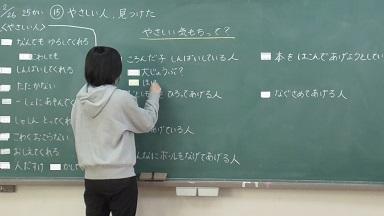 2/26 25かい ⑮ やさしい人,見つけた
<やさしい人>
なんでも ゆるしてくれる
しんぱいしてくれる
たたかない
いっしょにあそんでくれる
しゃしん とってくれる
こわく おこらない
おしえてくれる
人だすけ
やさしい気もちって?
ころんだ子 しんぱいしている人
大じょうぶ?
ひろってあげる人
けている人
んなに ボールをなげてあげる人
本を はこんであげようとしてい
なぐさめてあげる人